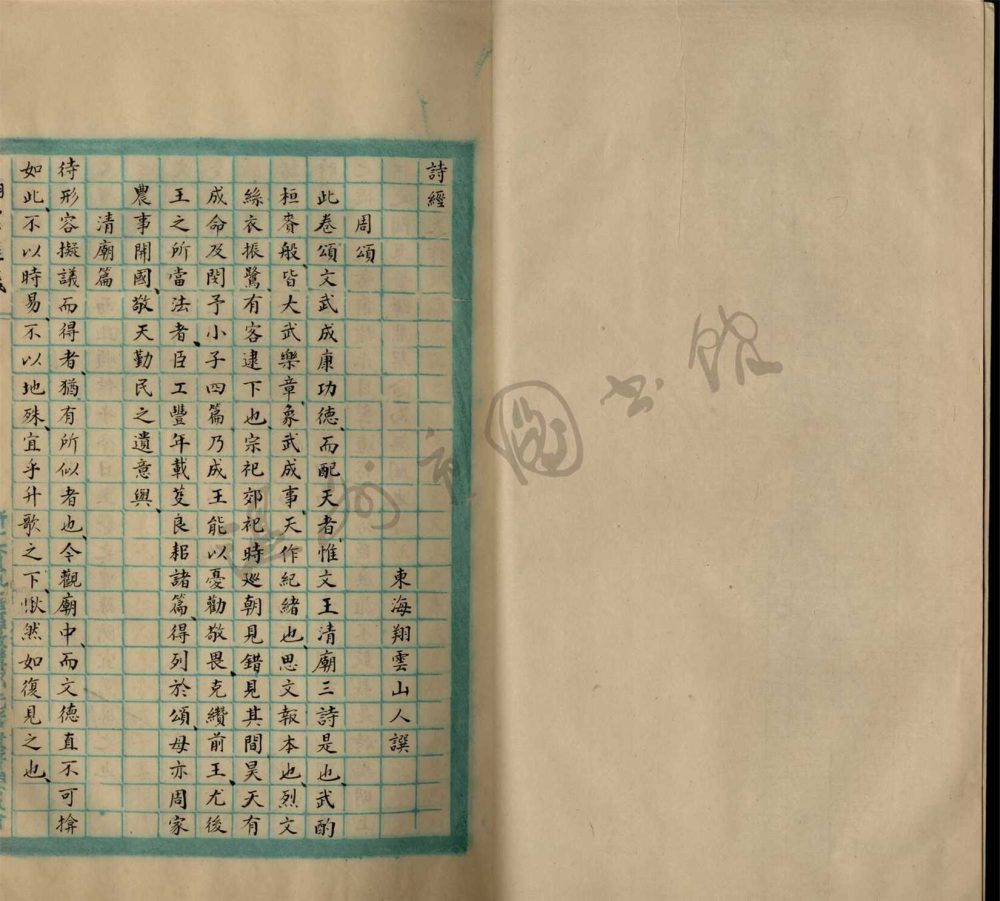 詩經
東海翔雲山人譔
周頌
此卷頌文武成康功德、而配天者、惟文王清廟三詩是也、武酌
桓賚般、皆大武樂章、象武成事、天作紀緒也、思文報本也、烈文
絲衣振鷺、有客逮下也、宗祀郊祀時廵朝見、錯見其間昊天有
成命及閔予小子四篇、乃成王能以憂勤敬畏、克纘前王、尤後
王之所當法者、臣工豐年載芟良耜諸篇、得列於頌、毋亦周家
農事開國、敬天勤民之遺意與、
清廟篇
待形容擬議而得者、猶有所似者也、今觀廟中、而文德直不可揜
如此、不以時易、不以地殊、宜乎升歌之下、愀然如復見之也、
圖書館